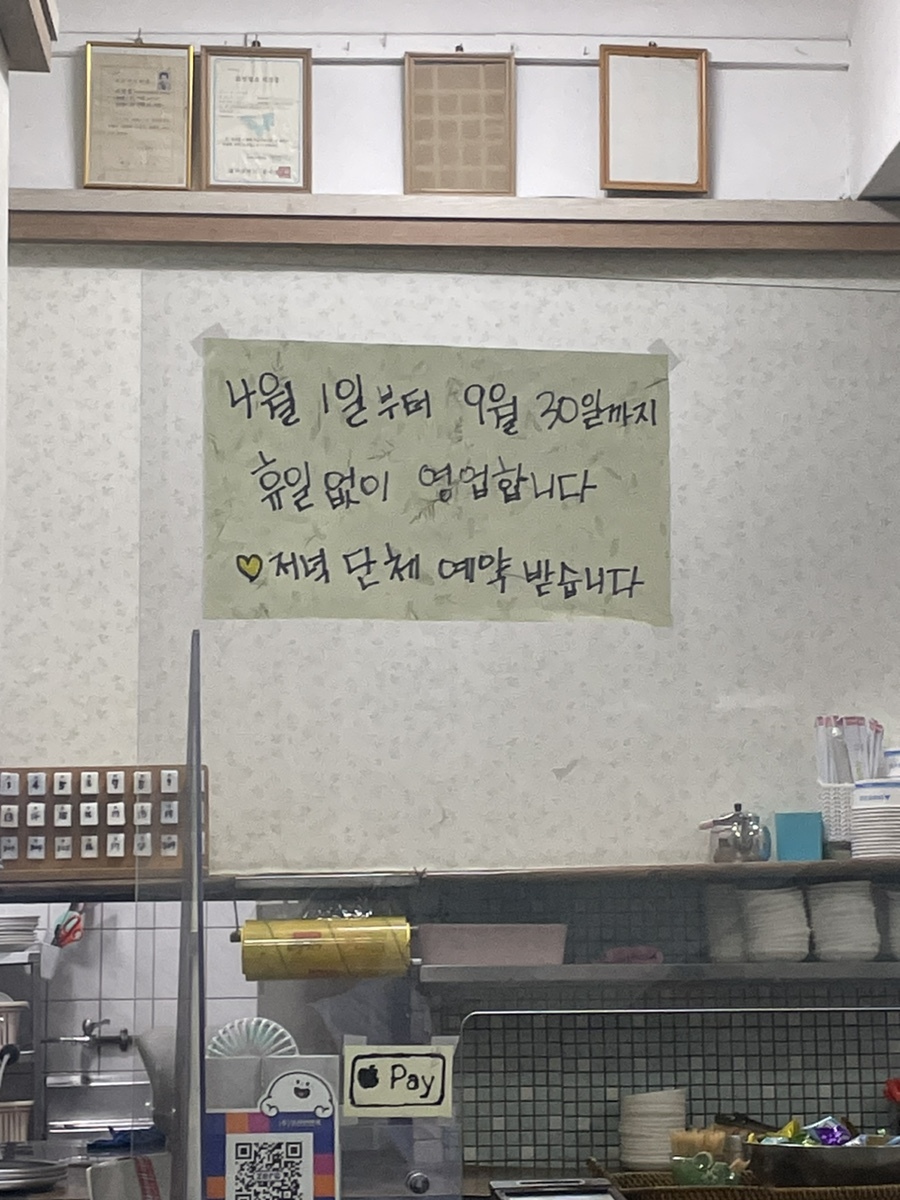 4월 1일부터 9월 30일까지
휴일 없이 영업합니다
♡저녁 단체 예약 받습니다
Pay
zero